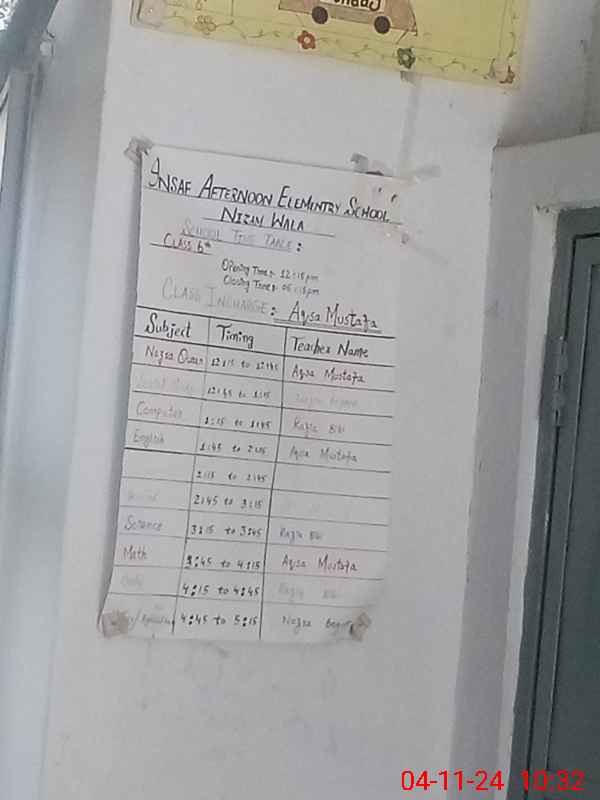 INSAF AFTERNOON ELEMENTRY SCHOOL
NIZAM WALA
SCHOOL TIME TABLE:
CLASS 6th
Opening Time: 12:15 pm
Closing Time: 05:15 pm
CLASS INCHARGE: Aqsa Mustafa
Subject Timing Teacher Name
Nazra Quran 12:15 to 12:45 Aqsa Mustafa
12:45 to 1:15
Computer 1:15 to 1:45 Razia Bibi
English 1:45 to 2:15 Aqsa Mustafa
2:15 to 2:45
2:45 to 3:15
Science 3:15 to 3:45 Razia Bibi
Math 3:45 to 4:15 Aqsa Mustafa
4:15 to 4:45 Razia Bibi
4:45 to 5:15
04-11-24 10:32